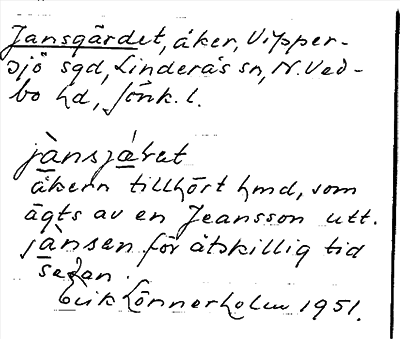 Jansgärdet, åker, Vipper-
sjö sgd, Linderås sn, N. Ved-
bo hd, Jönk. l.
jànsjàret
åkern tillhört hmd, som
ägts av en Jeansson utt.
jànsen för åtskillig tid
sedan.
Erik Lönnerholm 1951.